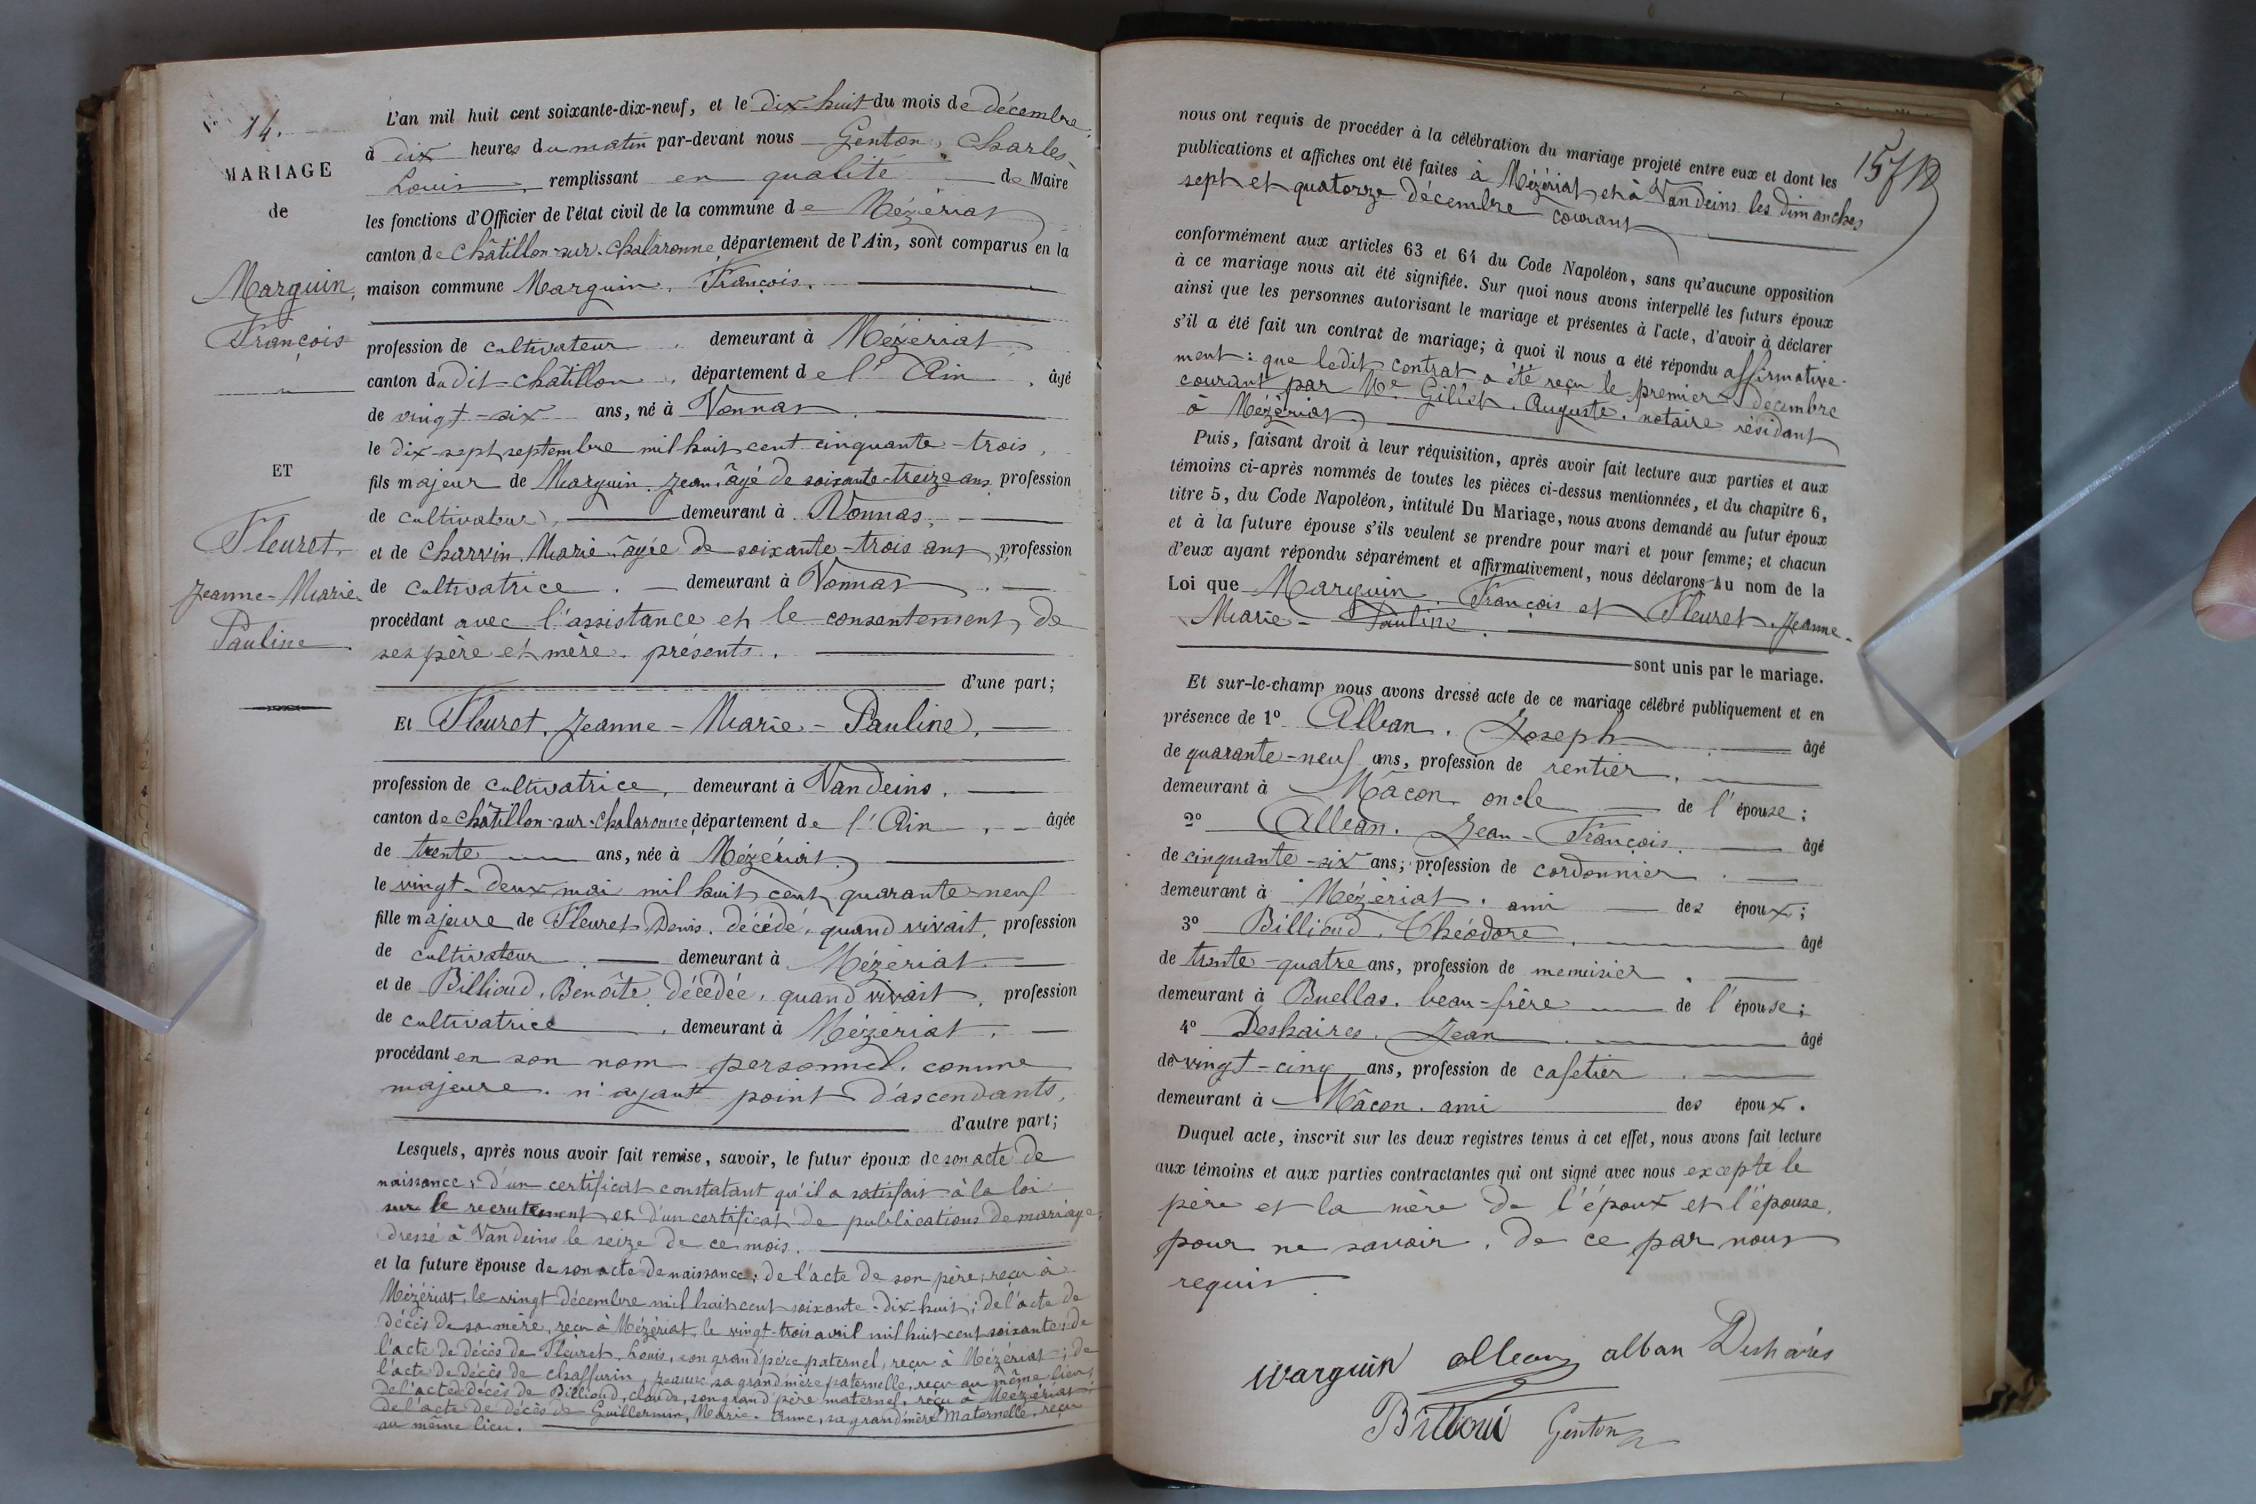 N° 14.
MARIAGE
de
Marguin,
François
ET
Fleuret,
Jeanne-Marie-
Pauline
L'an mil huit cent soixante-dix-neuf, et le dix-huit du mois de décembre,
à dix heures du matin par-devant nous Genton, Charles-
Louis, remplissant en qualité de Maire
les fonctions d'Officier de l'état civil de la commune de Mézériat
canton de Châtillon-sur-Chalaronne, département de l'Ain, sont comparus en la
maison commune Marguin, François.
profession de cultivateur, demeurant à Mézériat,
canton dudit Châtillon, département de l'Ain, âgé
de vingt-six ans, né à Vonnas,
le dix-sept septembre mil huit cent cinquante-trois,
fils majeur de Marguin, Jean, âgé de soixante-treize ans, profession
de cultivateur, demeurant à Vonnas,
et de Charvin, Marie, âgée de soixante-trois ans, profession
de cultivatrice, demeurant à Vonnas,
procédant avec l'assistance et le consentement de
ses père et mère, présents.
d'une part;
Et Fleuret, Jeanne-Marie-Pauline,
profession de cultivatrice, demeurant à Vandeins,
canton de Châtillon-sur-Chalaronne, département de l'Ain, âgée
de trente ans, née à Mézériat,
le vingt-deux mai mil huit cent quarante-neuf
fille majeure de Fleuret Denis, décédé, quand vivait, profession
de cultivateur, demeurant à Mézériat
et de Billioud, Benoîte, décédée, quand vivait, profession
de cultivatrice, demeurant à Mézériat,
procédant en son nom personnel, comme
majeure, n'ayant point d'ascendants,
d'autre part;
Lesquels, après nous avoir fait remise, savoir, le futur époux de son acte de
naissance; d'un certificat constatant qu'il a satisfait à la loi
sur le recrutement et d'un certificat de publications de mariage,
dressé à Vandeins le seize de ce mois.
et la future épouse de son acte de naissance; de l'acte de son père, reçu à
Mézériat, le vingt décembre mil huit cent soixante-dix-huit; de l'acte de
décès de sa mère, reçu à Mézériat, le vingt-trois avril mil huit cent soixante; de
l'acte de décès de Fleuret, Louis, son grand'père paternel, reçu à Mézériat; de
l'acte de décès de Chaffurin, Jeanne, sa grand'mère paternelle, reçu au même lieu;
de l'acte de décès de Billioud, Claude, son grand'père maternel, reçu à Mézériat;
de l'acte de décès de Guillermin, Marie-Anne, sa grand'mère maternelle, reçu
au même lieu.
157
nous ont requis de procéder à la célébration du mariage projeté entre eux et dont les
publications et affiches ont été faites à Mézériat et à Vandeins les dimanches
sept et quatorze décembre courant
conformément aux articles 63 et 64 du Code Napoléon, sans qu'aucune opposition
à ce mariage nous ait été signifiée. Sur quoi nous avons interpellé les futurs époux
ainsi que les personnes autorisant le mariage et présentes à l'acte, d'avoir à déclarer
s'il a été fait un contrat de mariage; à quoi il nous a été répondu affirmative-
ment: que ledit contrat a été reçu le premier décembre
courant par Me Gillet, Auguste, notaire résidant
à Mézériat
Puis, faisant droit à leur réquisition, après avoir fait lecture aux parties et aux
témoins ci-après nommés de toutes les pièces ci-dessus mentionnées, et du chapitre 6,
titre 5, du Code Napoléon, intitulé Du Mariage, nous avons demandé au futur époux
et à la future épouse s'ils veulent se prendre pour mari et pour femme; et chacun
d'eux ayant répondu séparément et affirmativement, nous déclarons Au nom de la
Loi que Marguin, François et Fleuret, Jeanne-
Marie-Pauline.
sont unis par le mariage.
Et sur-le-champ nous avons dressé acte de ce mariage célébré publiquement et en
présence de 1° Alban, Joseph âgé
de quarante-neuf ans, profession de rentier,
demeurant à Mâcon, oncle de l'épouse;
2° Alléan, Jean-François, âgé
de cinquante-six ans, profession de cordonnier,
demeurant à Mézériat, ami des époux;
3° Billioud, Théodore, âgé
de trente-quatre ans, profession de menuisier,
demeurant à Buellas, beau-frère de l'épouse;
4° Deshaires, Jean âgé
de vingt-cinq ans, profession de cafetier,
demeurant à Mâcon, ami des époux.
Duquel acte, inscrit sur les deux registres tenus à cet effet, nous avons fait lecture
aux témoins et aux parties contractantes qui ont signé avec nous excepté le
père et la mère de l'époux et l'épouse,
pour ne savoir, de ce par nous
requis.
Marguin allean alban Deshaires
Billioud Genton